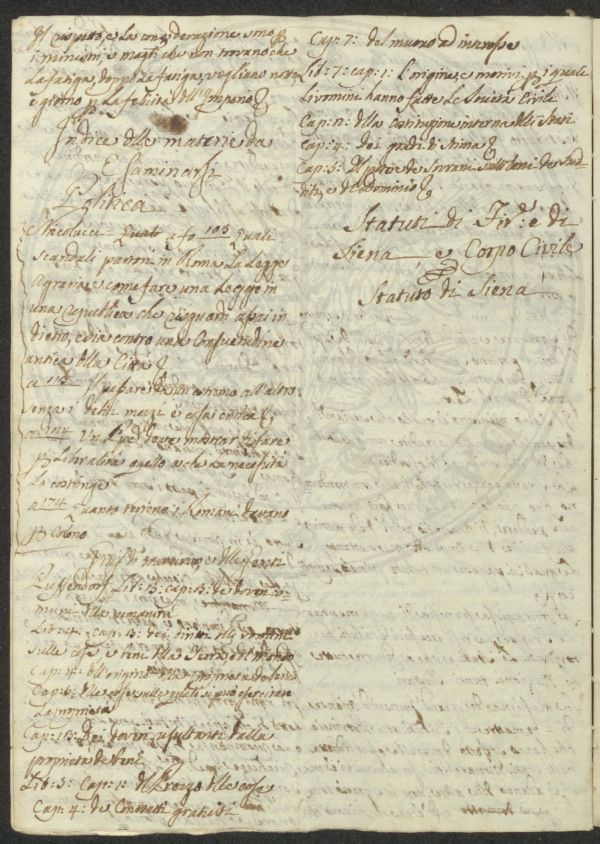 Il rispetto e la considerazione sono p
i ministri e magti che non trovano che
La fatiga, doppo La fatiga, vegliano notte
e giorno p La felicità dell'
Indice delle materie da
Esaminarsi
Politica
a fo 103 Quali
scandali partorì in Roma La Legge
Agraria e come fare una Legge in
una republica che riguardi assai in
dietro, e sia contro una Consuetudine
antica della Città
a il passare da un estremo all'altro
senza i debiti mezzi è cosa
Un deve mostrar di fare
p Liberalità quello a che La necessità
Lo costringe
a 174 Quanto terreno i Romani davano
p Colono
delle Genti
Puffendorf Lib: 3: cap: 3: de doveri co-
muni della umanità
Lib: 4: cap: 3: dei diritti delli uomini
sulle cose e beni della Terra
Cap: 4: dell'origine della proprietà de beni
Cap: 6: delle cose sulle quali si può esercitare
La proprietà
Cap: 13: Dei doveri resultanti dalla
proprietà de beni
Lib: 5: Cap: 1: del Prezzo delle cose
Cap: 4: de Contratti gratuiti
Cap: 7: del mutuo ad interesse
Lib: 7: cap: 1: L'origine, e motivi p i quali
Li uomini hanno fatte Le Società Civili
Cap: 2: della costituzione interna delli Stati
Cap: 4: dei gradi di stima
Cap: 5: Il potere de Sovrani sulli beni de Sud-
diti, e del dominio
Statuti di Fir: e di
Siena e Corpo Civile
Statuto di Siena